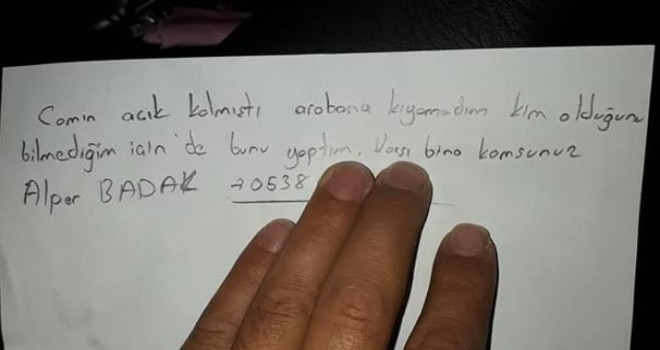 Camın açık kalmıştı arabana kıyamadım kim olduğunu
bilmediğim için de bunu yaptım. Karşı bina komşunuz
Alper BADAK → 0538